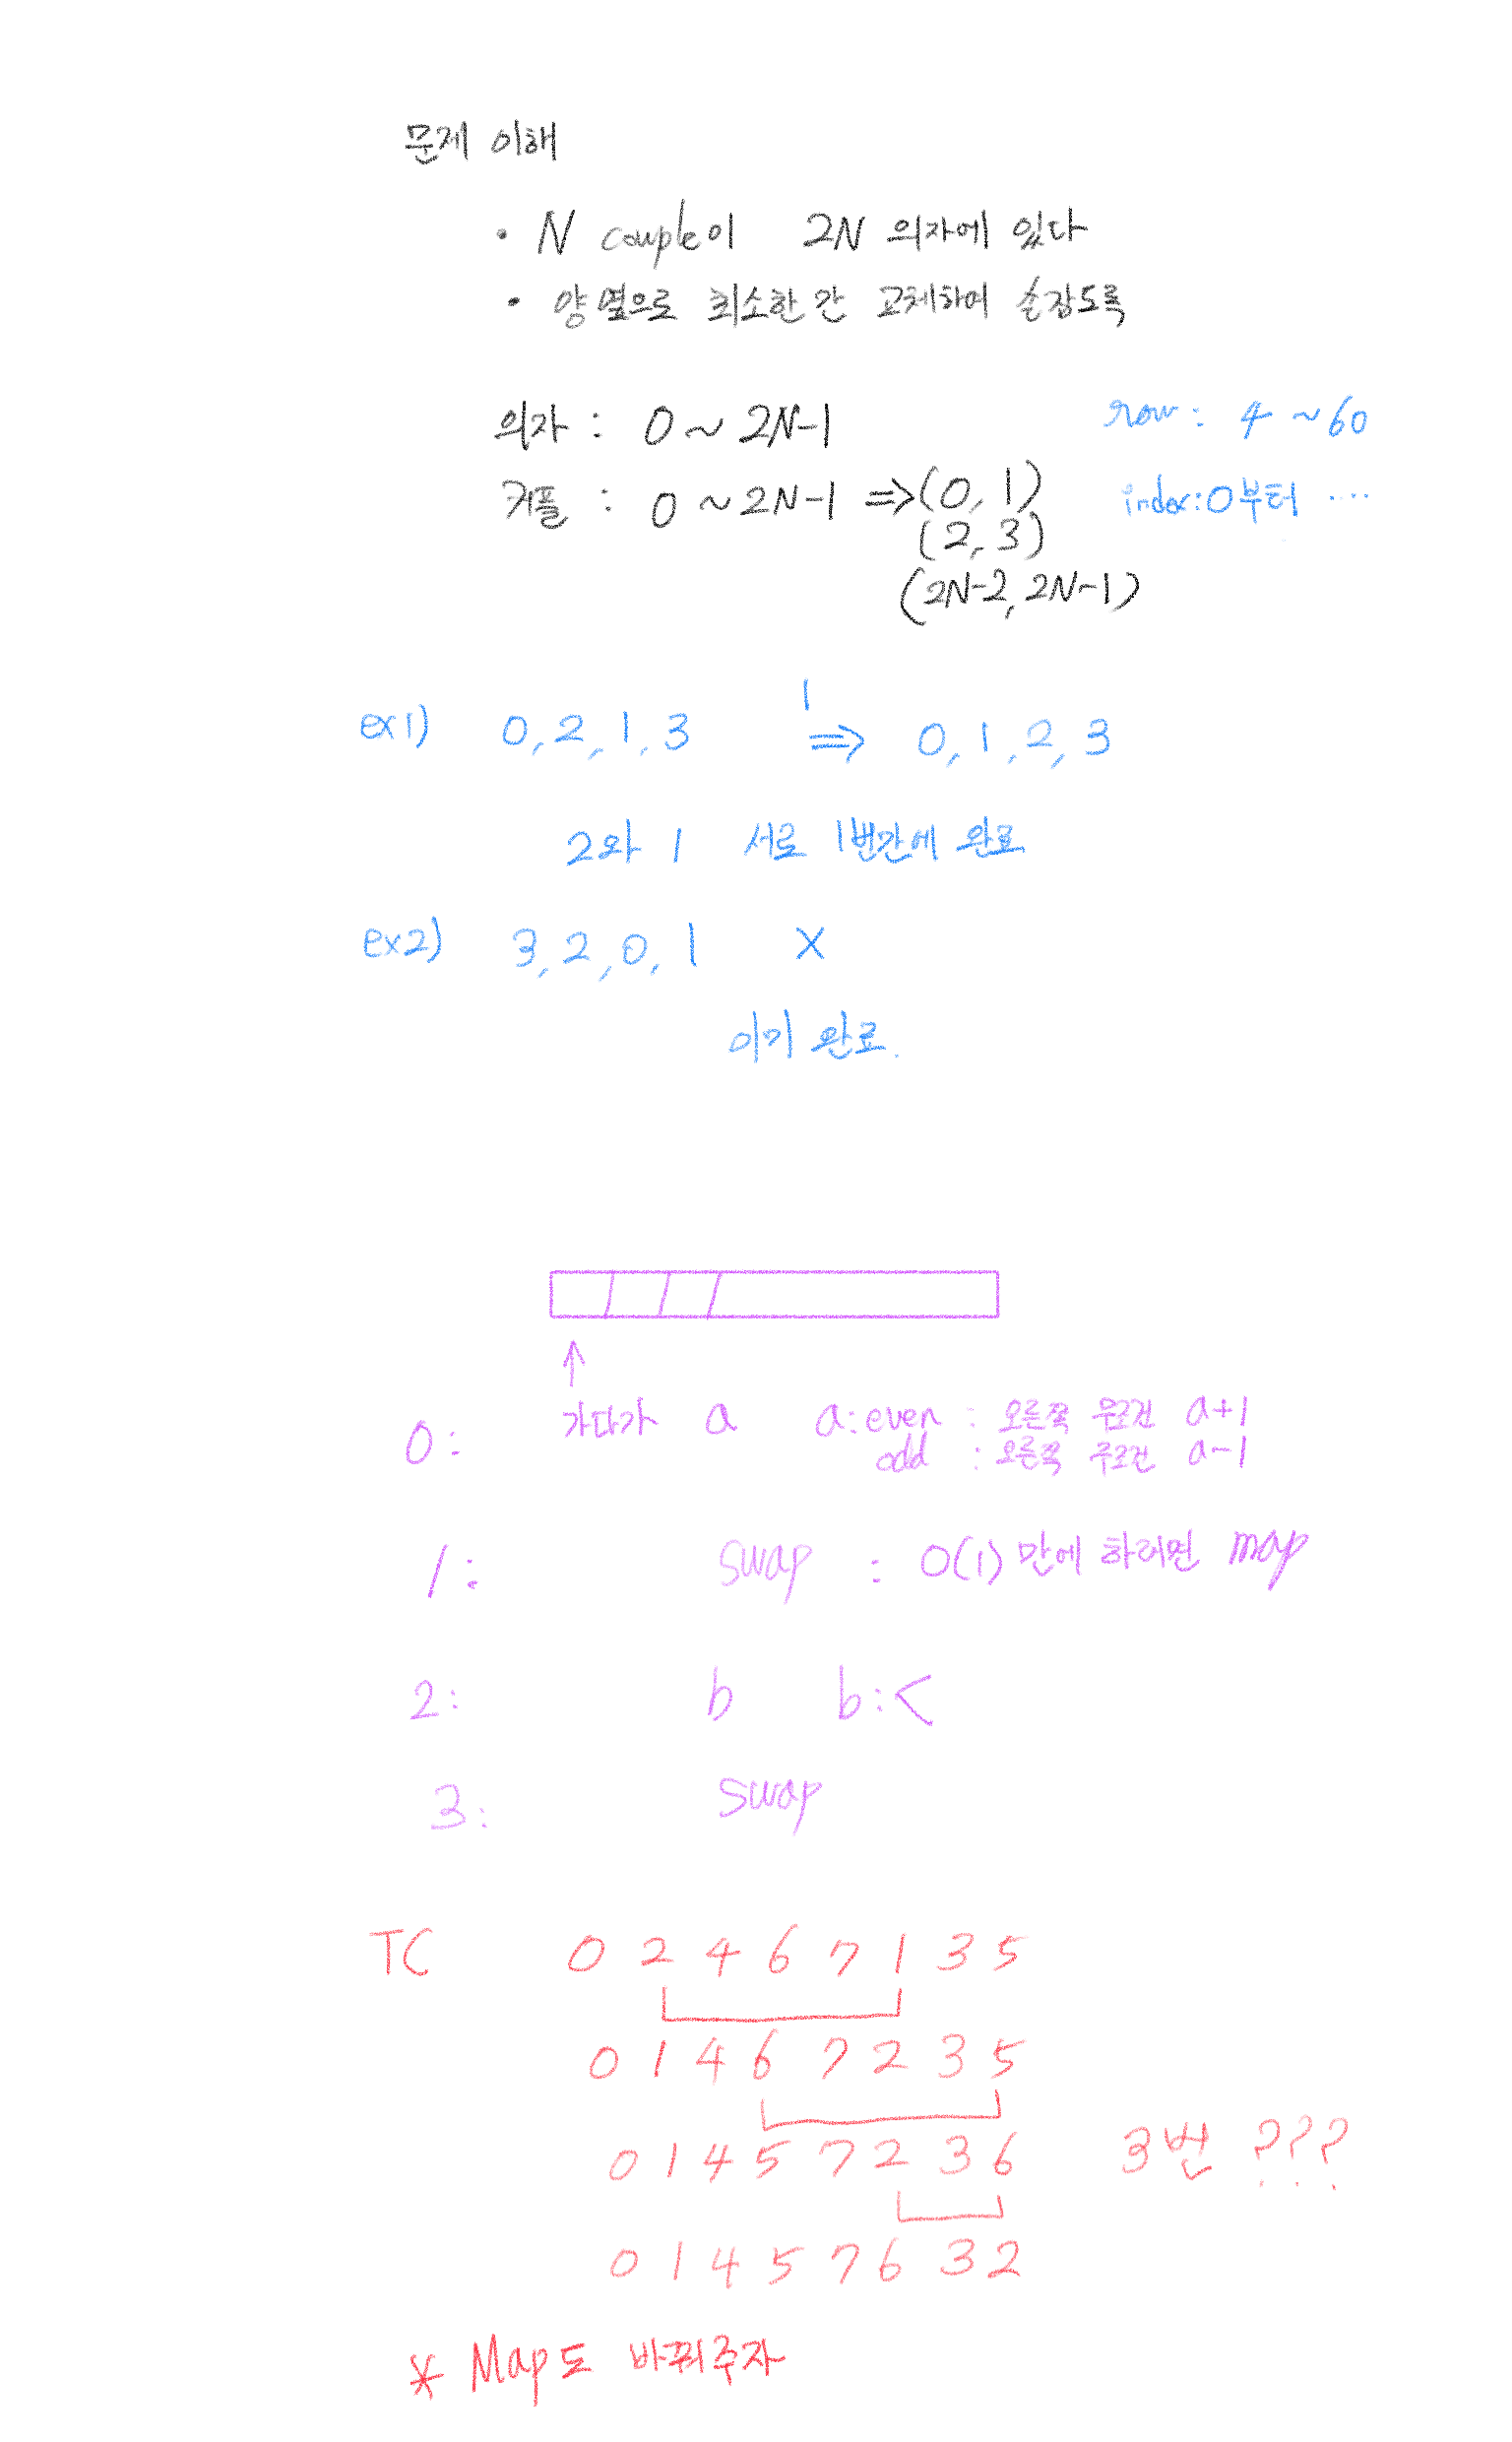 문제 이해
• N couple이 2N 의자에 있다
• 양 옆으로 최소한 간 교체하여 손잡도록
의자 : 0 ~ 2N-1
row : 4 ~ 60
커플 : 0 ~ 2N-1 => (0, 1)
index : 0부터 ...
(2, 3)
(2N-2, 2N-1)
ex1) 0, 2, 1, 3 1 => 0, 1, 2, 3
2와 1 서로 1번만에 완료
ex2) 3, 2, 0, 1 X
이미 완료.
0: 가다가 a a: even : 오른쪽 무조건 a+1
odd : 오른쪽 무조건 a-1
1: swap : O(1) 만에 하려면 map
2: b b: <
3: swap
TC 0 2 4 6 7 1 3 5
0 1 4 6 7 2 3 5
0 1 4 5 7 2 3 6 3번 ???
0 1 4 5 7 6 3 2
* Map도 바꿔주자